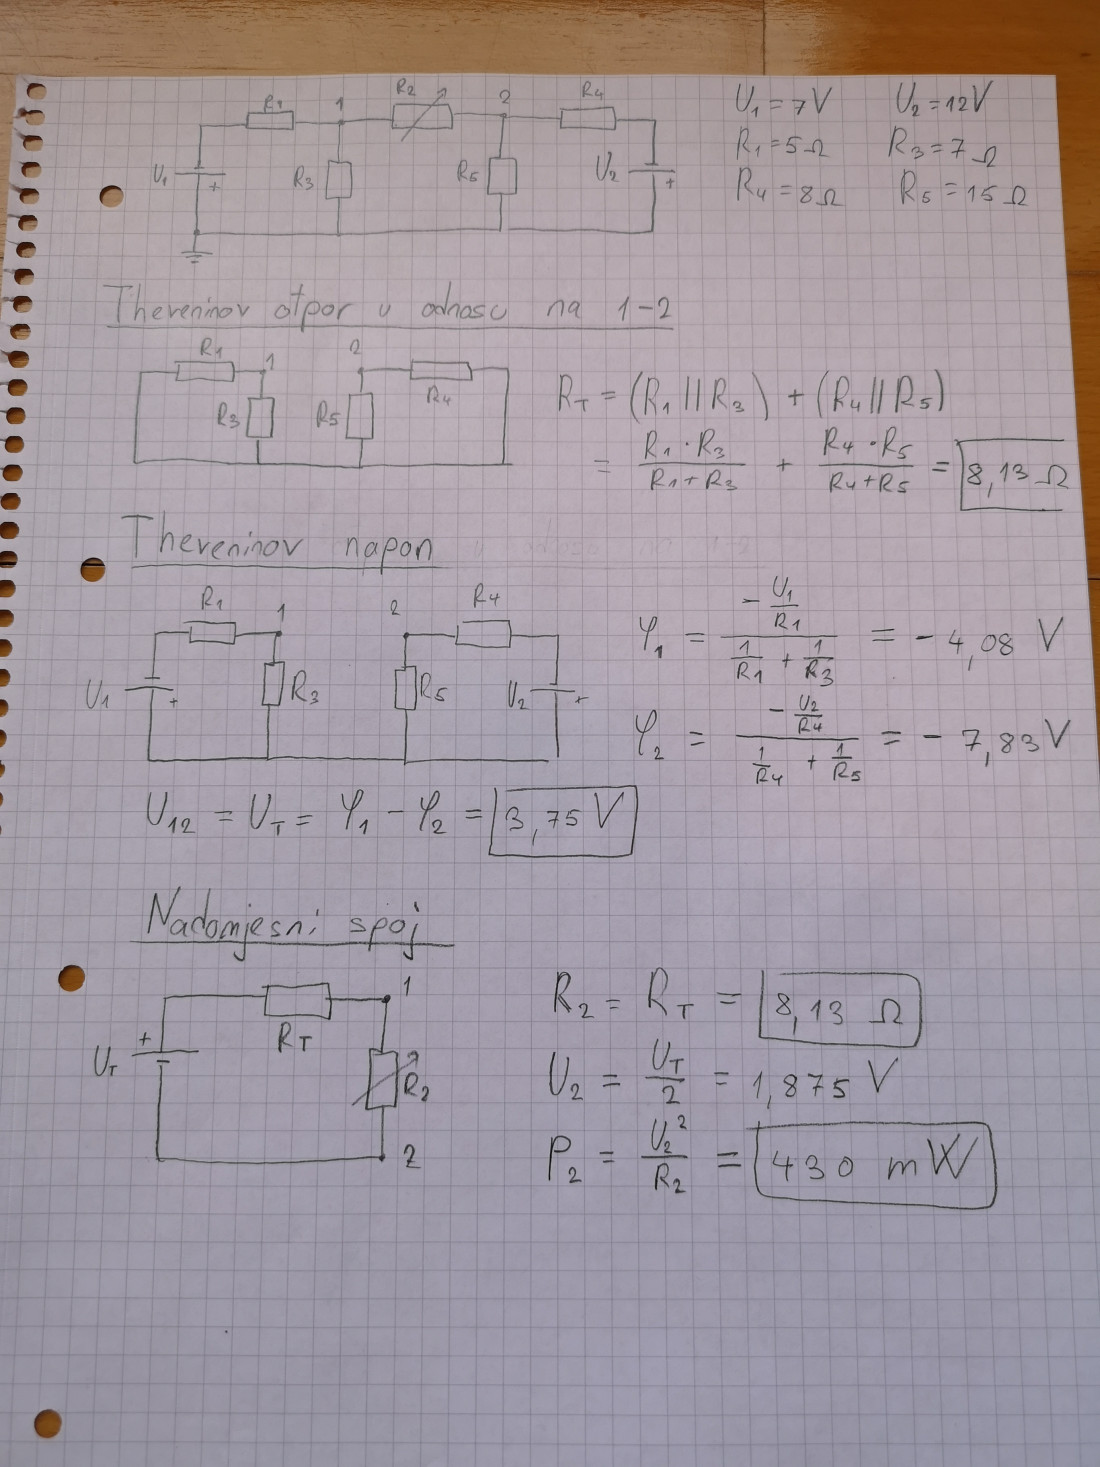 R1 1 R2 2 R4
U1 + R3 R5 U2 +
U1 = 7V U2 = 12V
R1 = 5Ω R3 = 7Ω
R4 = 8Ω R5 = 15Ω
Theveninov otpor u odnosu na 1-2
R1 1 2 R4
R3 R5
RT = (R1 || R3) + (R4 || R5)
= R1 · R3 / R1 + R3 + R4 · R5 / R4 + R5 = 8,13 Ω
Theveninov napon
R1 1 2 R4
U1 + R3 R5 U2 +
φ1 = - U1/R1 / 1/R1 + 1/R3 = - 4,08 V
φ2 = - U2/R4 / 1/R4 + 1/R5 = - 7,83 V
U12 = UT = φ1 - φ2 = 3,75 V
Nadomjesni spoj
UT + RT 1
R2
2
R2 = RT = 8,13 Ω
U2 = UT / 2 = 1,875 V
P2 = U2² / R2 = 430 mW